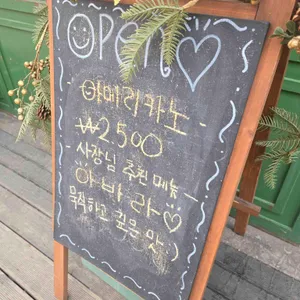 OPEN
아메리카노
₩2500
- 사장님 추천 메뉴 -
아바라♡
묵직하고 깊은 맛 )